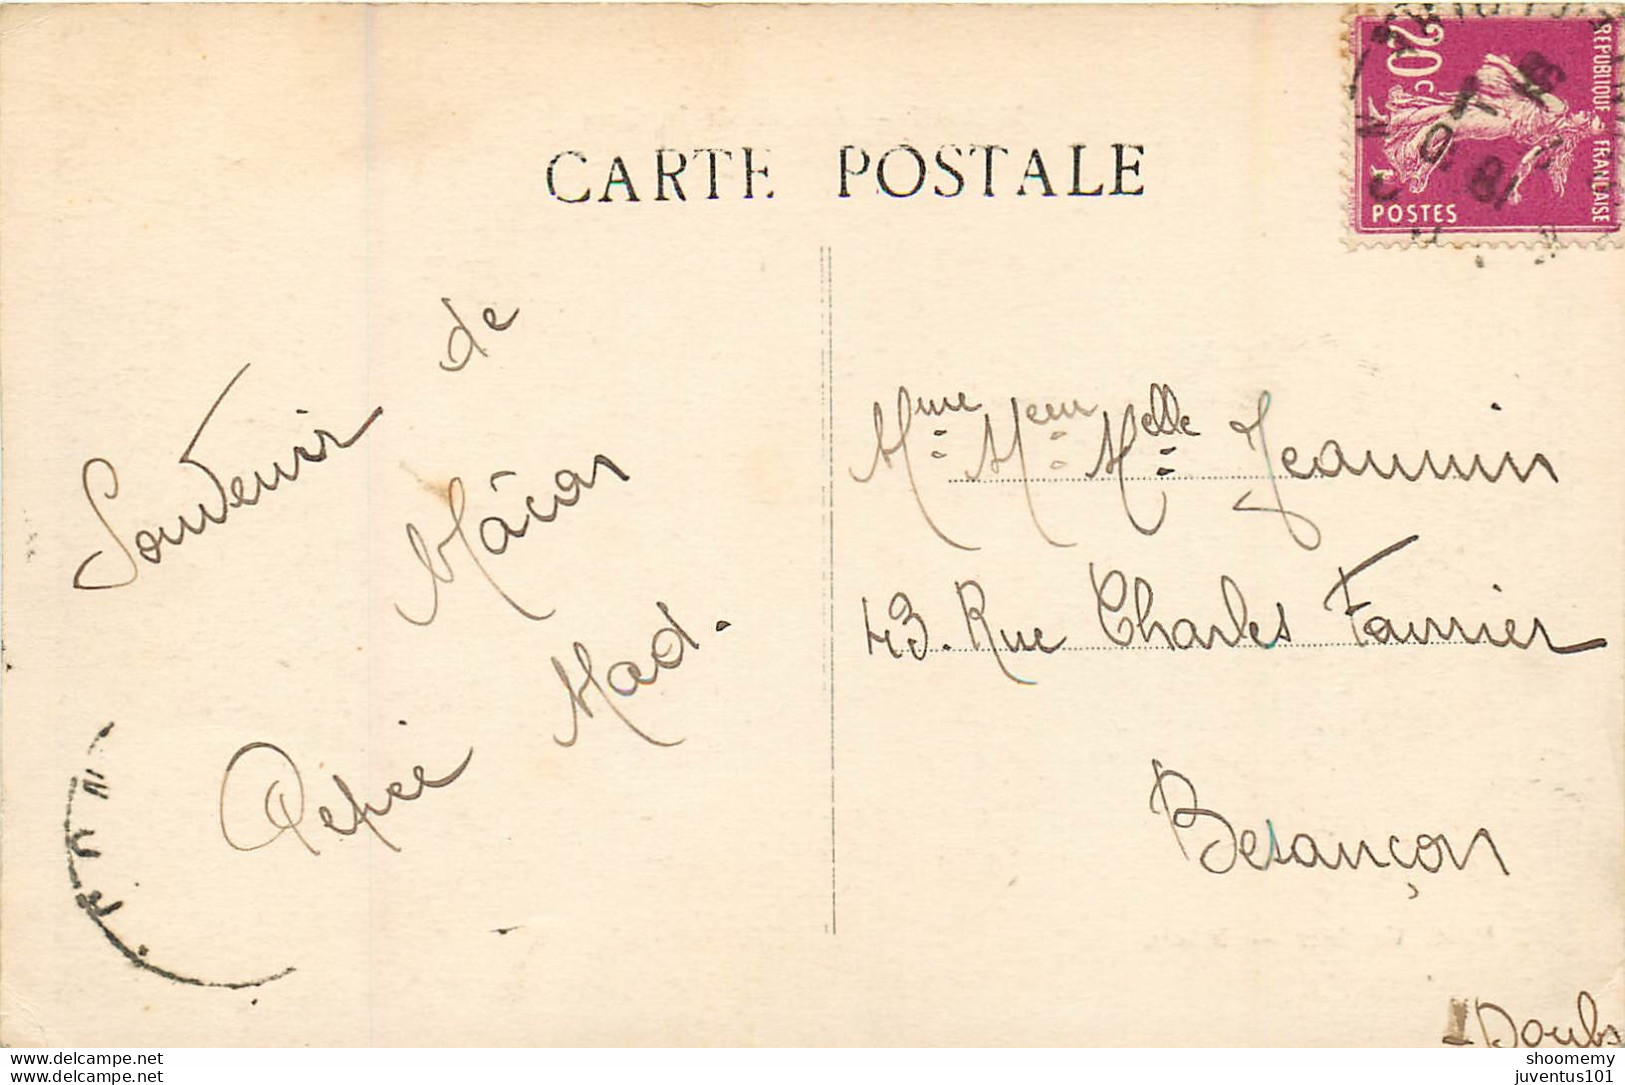 CARTE POSTALE
REPUBLIQUE - FRANÇAISE
20c
POSTES
Souvenir de
Mâcon
Mad.
Mme. Melle. Jeannin
43. Rue Charles Fournier
Besançon
Doubs
www.delcampe.com
www.delcampe.com
shoomemy
juventus101